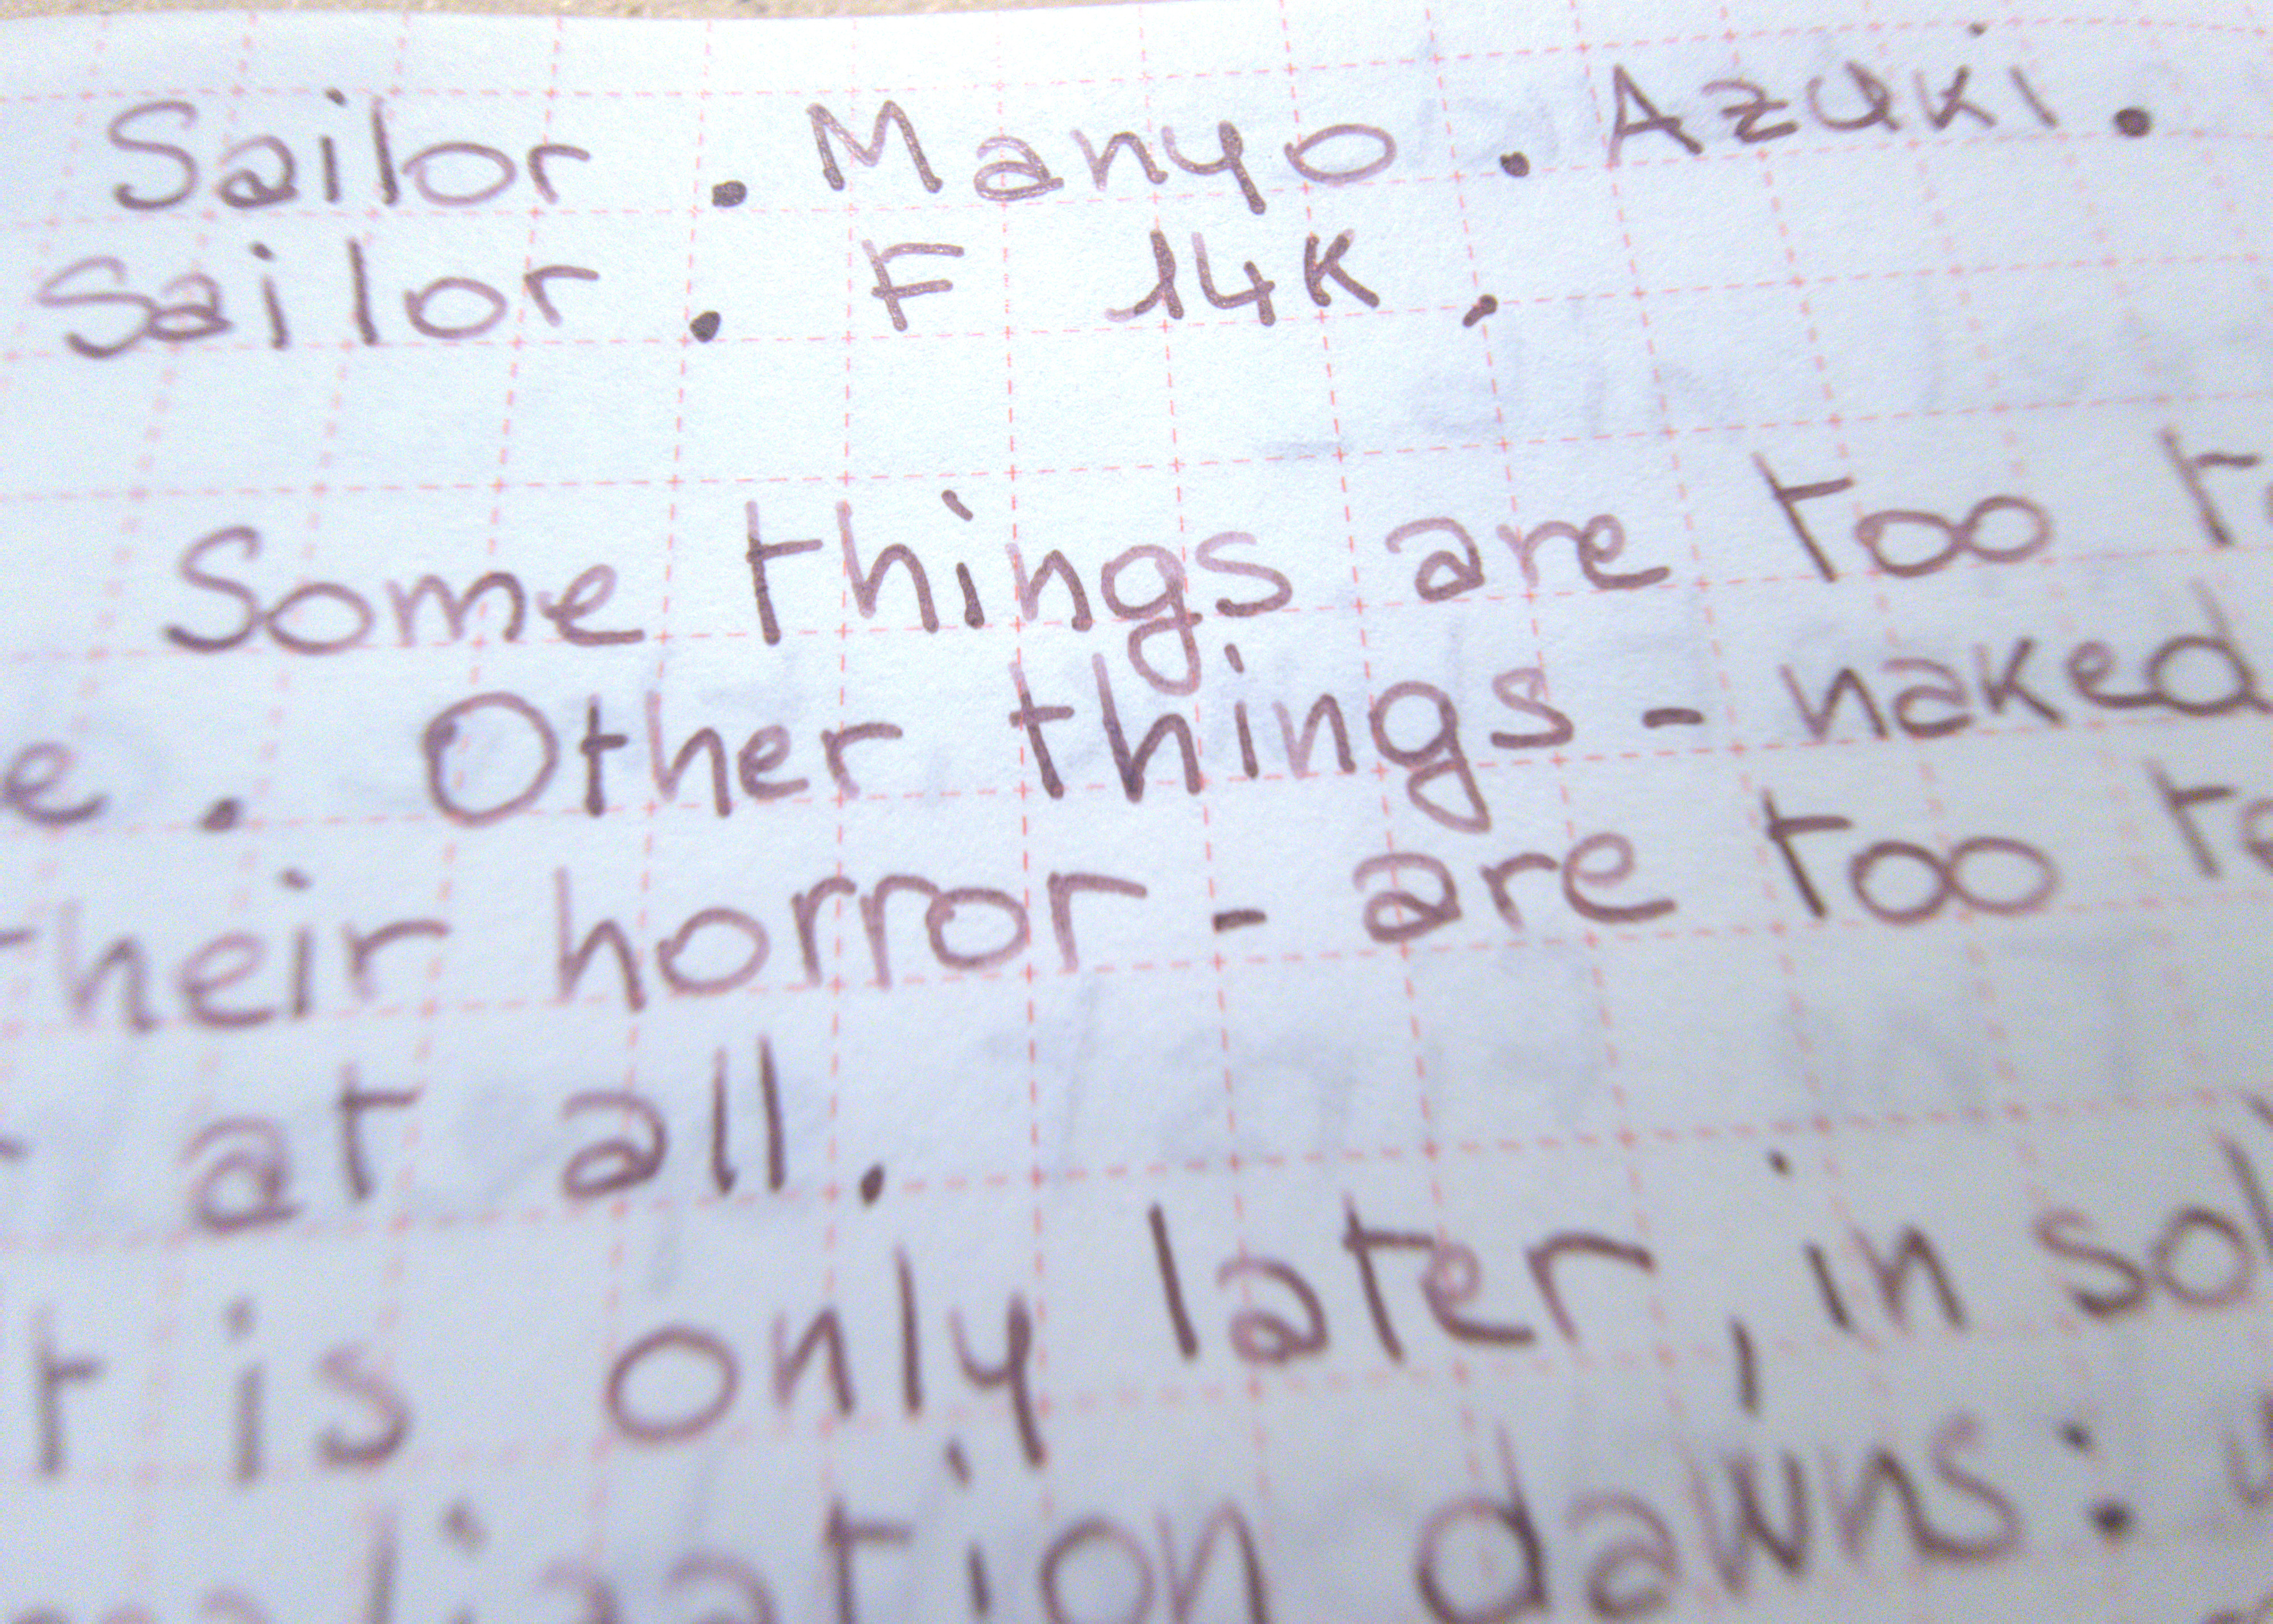 Sailor . Manyo . Azuki .
Sailor . F 14K .
Some things are too
e . Other things - naked
their horror - are too
at all .
is only later , in
dawns :